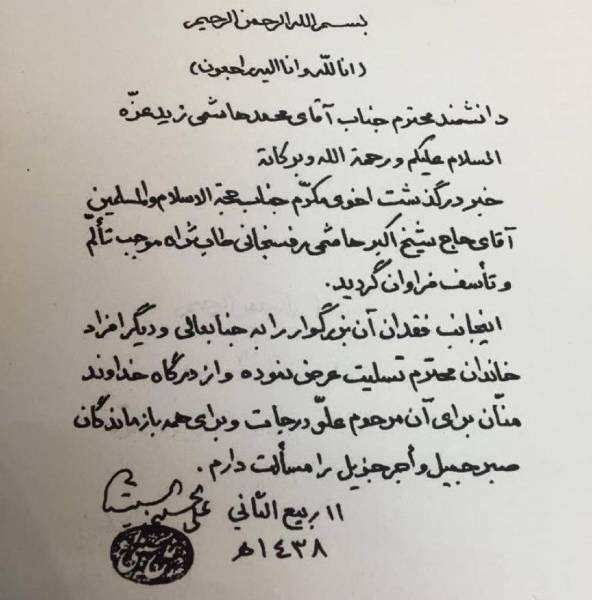 بسم الله الرحمن الرحیم
(انا لله وانا الیه راجعون)
دانشمند محترم جناب آقای محمد هاشمی زید عزّه
السلام علیکم ورحمة الله وبرکاته
خبر درگذشت اخوی مکرّم جناب حجة الاسلام والمسلمین
آقای حاج شیخ اکبر هاشمی رفسنجانی طاب ثراه موجب تألّم
وتأسف فراوان گردید.
اینجانب فقدان آن بزرگوار را به جنابعالی و دیگر افراد
خاندان محترم تسلیت عرض نموده و از درگاه خداوند
منّان برای آن مرحوم علوّ درجات و برای همه بازماندگان
صبر جمیل وأجر جزیل را مسألت دارم.
١١ ربیع الثّانی
علی الحسینی السیستانی
١٤٣٨ھ